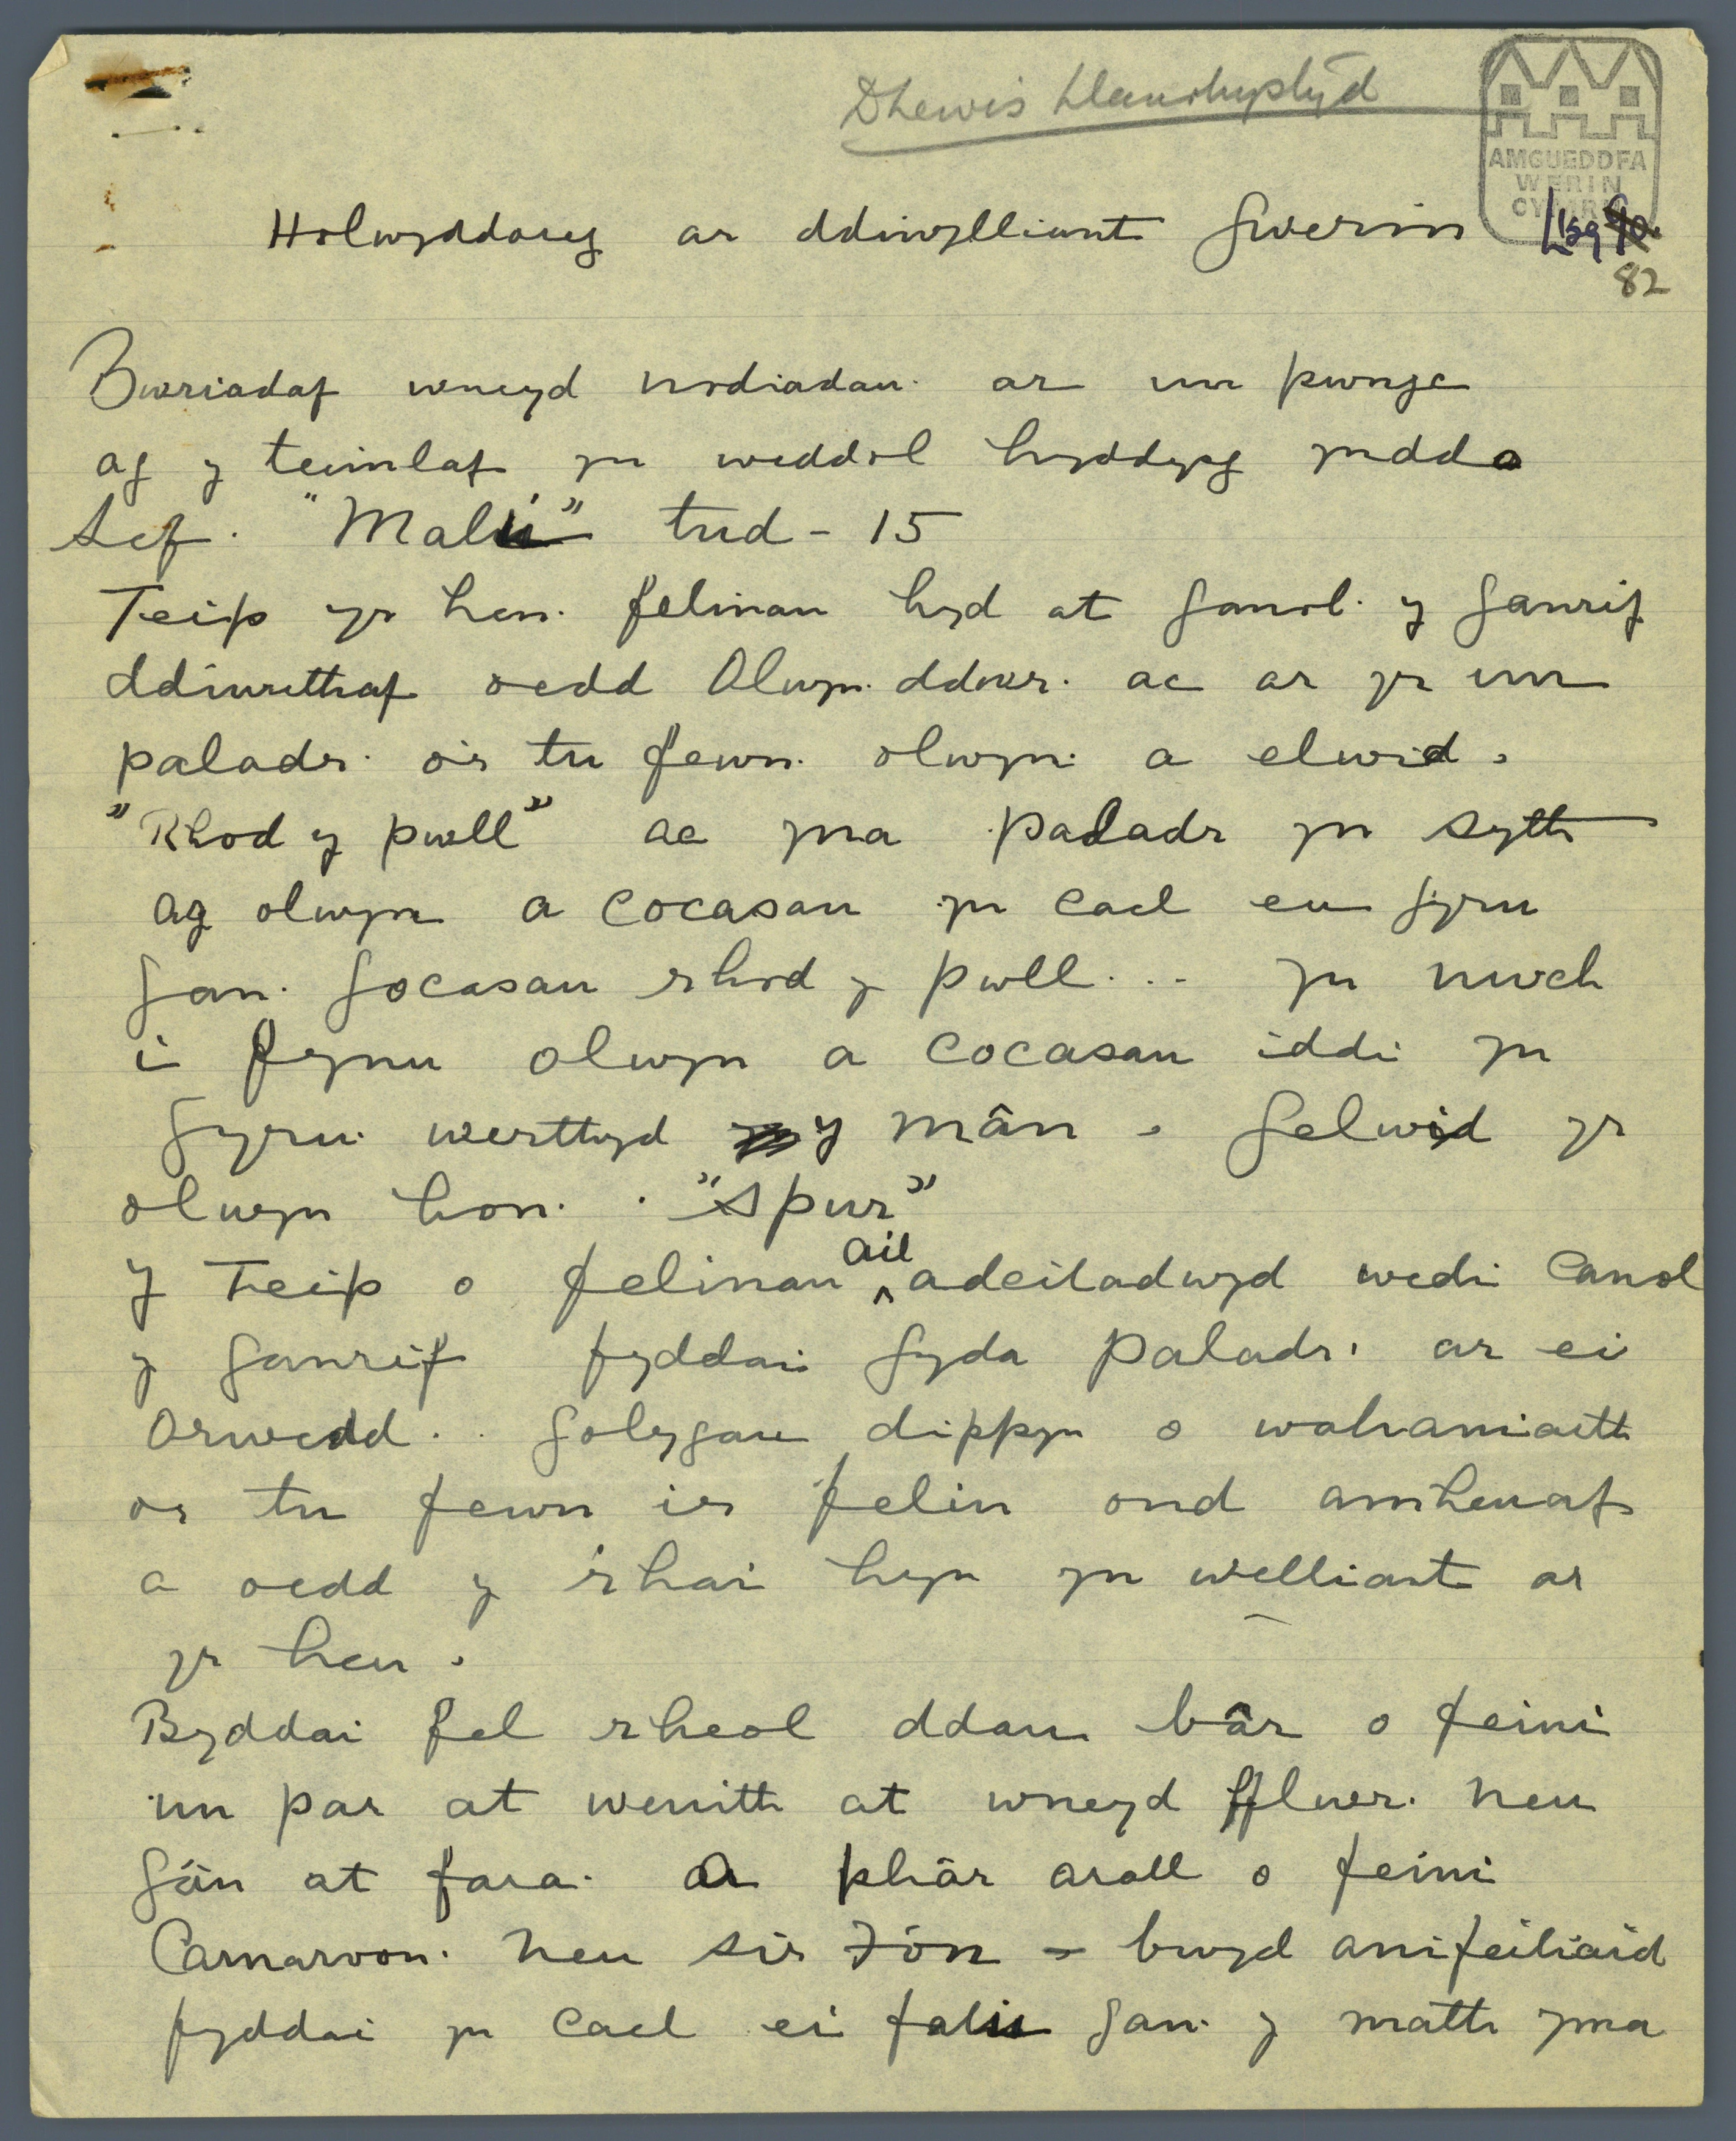 D Lewis Llanrhystyd
AMGUEDDFA
WERIN
CYMRU
Holwyddoreg ar ddiwylliant Gwerin
82
Bwriadaf wneyd nodiadau ar un pwngc
ag y teimlaf yn weddol hyddysg ynddo
Sef. "Malu" tud - 15
Teip yr hen felinau hyd at ganol y ganrif
ddiwethaf oedd Olwyn ddwr. ac ar yr un
paladr o'r tu fewn. olwyn a elwid.
"Rhod y pwll" ac yna paladr yn syth
ag olwyn a cocasau yn cael eu gyru
gan. gocasau rhod y pwll... yn uwch
i fynu olwyn a cocasau iddi yn
gyru. werthyd y mân. Gelwid yr
olwyn hon. "Spur"
y Teip o felinau ail adeiladwyd wedi Canol
y ganrif fyddai gyda paladr. ar ei
Orwedd.. golygau dippyn o wahaniaeth
or tu fewn ir felin ond amheuaf
a oedd y rhai hyn yn welliant ar
yr hen.
Byddai fel rheol ddau bâr o feini
un par at wenith at wneyd fflwr. neu
gân at fara. a phâr arall o feini
Carnarvon. neu sir Fôn - bwyd anifeiliaid
fyddai yn cael ei falu gan y math yma